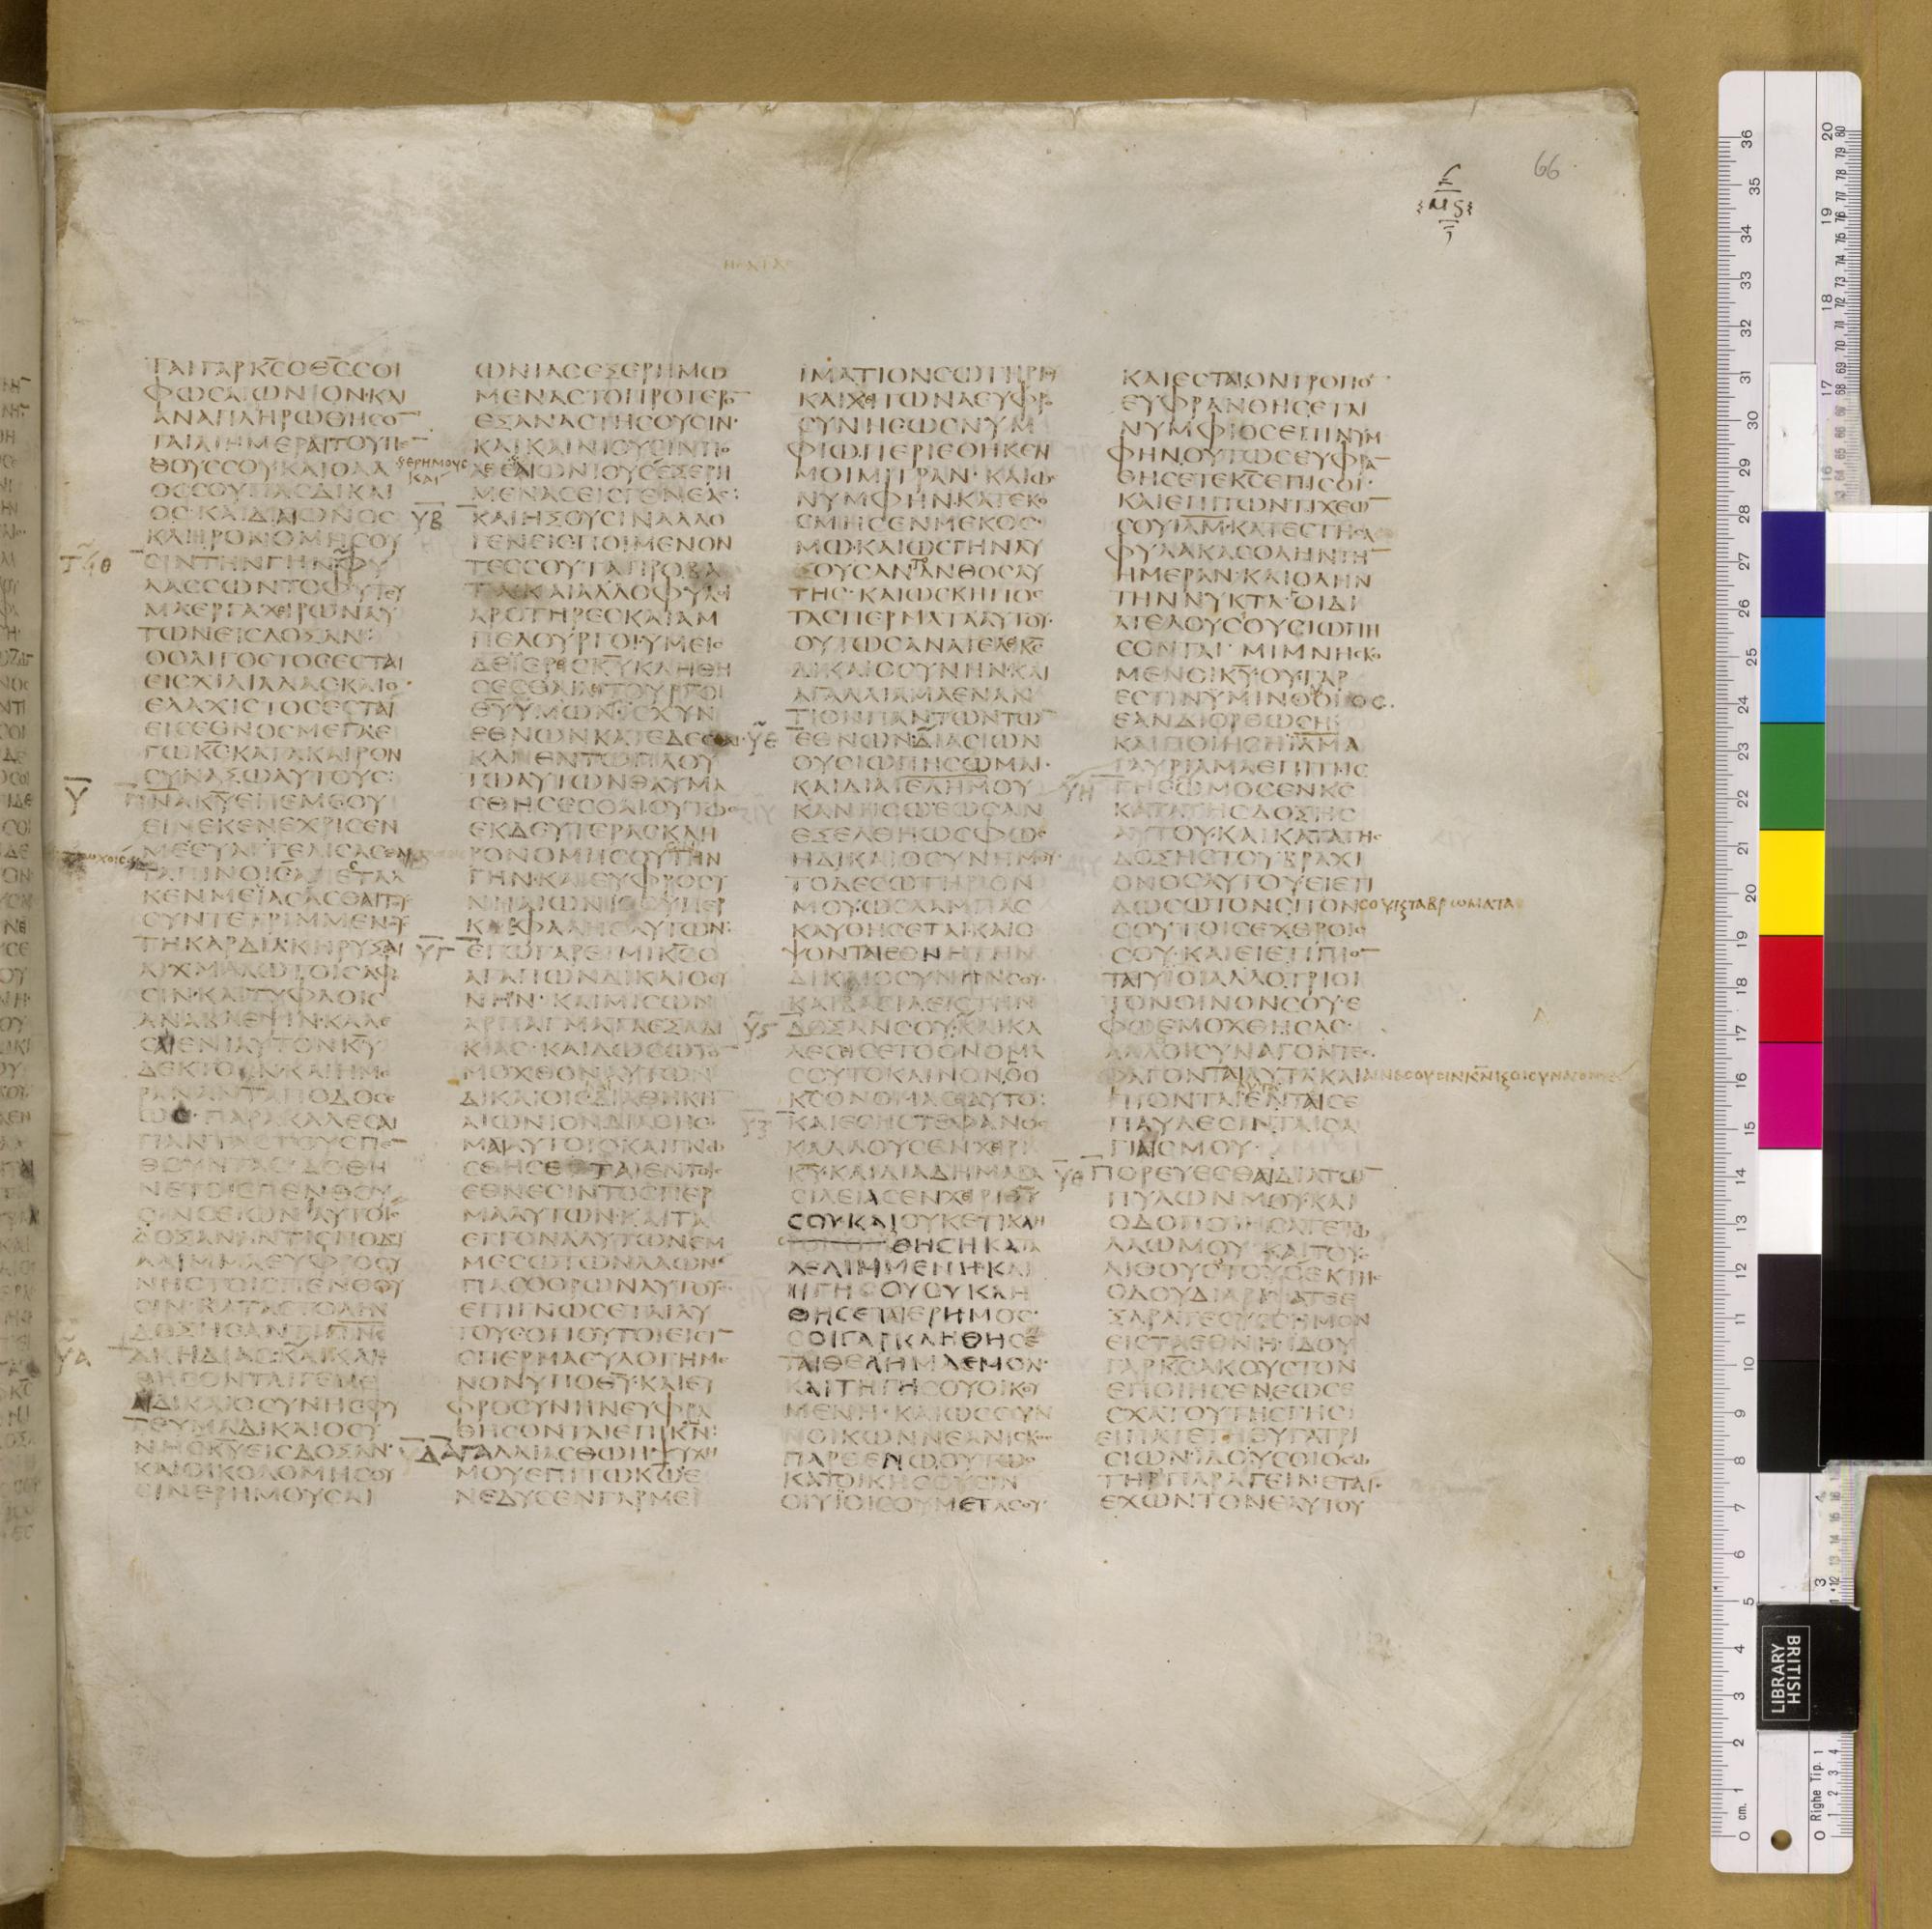 66
ΗΣΑΙΑΣ
ΤΑΙΓΑΡΚ̅Σ̅ΟΘ̅Σ̅ΣΟΙ
ΦΩΣΑΙΩΝΙΟΝ·ΚΑΙ
ΑΝΑΠΛΗΡΩΘΗΣΟ̅
ΤΑΙΑΙΗΜΕΡΑΙΤΟΥΠΕ̅
ΘΟΥΣΣΟΥΚΑΙΟΛΑ
ΟΣΣΟΥΠΑΣΔΙΚΑΙ
ΟΣ·ΚΑΙΔΙΑΙΩΝΟΣ
ΚΛΗΡΟΝΟΜΗΣΟΥ
ΣΙΝΤΗΝΓΗΝΦΥ
ΛΑΣΣΩΝΤΟΦΥΤΕΥ
ΜΑΕΡΓΑΧΙΡΩΝΑΥ
ΤΩΝΕΙΣΔΟΞΑΝ:
ΟΟΛΙΓΟΣΤΟΣΕΣΤΑΙ
ΕΙΣΧΙΛΙΑΔΑΣΚΑΙΟ·
ΕΛΑΧΙΣΤΟΣΕΣΤΑΙ
ΕΙΣΕΘΝΟΣΜΕΓΑΕ
ΓΩΚ̅Σ̅ΚΑΤΑΚΑΙΡΟΝ
ΣΥΝΑΞΩΑΥΤΟΥΣ:
Υ̅ Π̅Ν̅ΑΚ̅Υ̅ΕΠΕΜΕΟΥ
ΕΙΝΕΚΕΝΕΧΡΙΣΕΝ
ΜΕΕΥΑΓΓΕΛΙΣΑΣΘΑΙ
ΚΕΝΜΕΪΑΣΑΣΘΑΙΤΟΥ
ΣΥΝΤΕΤΡΙΜΜΕΝΟΥ
ΤΗΚΑΡΔΙΑ·ΚΗΡΥΞΑΙ
ΑΙΧΜΑΛΩΤΟΙΣΑΦΕ
ΣΙΝ·ΚΑΙΤΥΦΛΟΙΣ
ΑΝΑΒΛΕΨΙΝ·ΚΑΛΕ
ΣΑΙΕΝΙΑΥΤΟΝΚ̅Υ̅
ΔΕΚΤΟΝΚΑΙΗΜΕ
ΡΑΝΑΝΤΑΠΟΔΟΣΕ
ΩΣ·ΠΑΡΑΚΑΛΕΣΑΙ
ΠΑΝΤΑΣΤΟΥΣΠΕ̅
ΘΟΥΝΤΑΣ·ΔΟΘΗ
ΝΕΤΟΙΣΠΕΝΘΟΥ
ΣΙΝΣΕΙΩΝΑΥΤΟΙΣ
ΔΟΞΑΝΑΝΤΙΣΠΟΔΟΥ
ΑΛΙΜΜΑΕΥΦΡΟΣΥ
ΝΗΣΤΟΙΣΠΕΝΘΟΥ
ΣΙΝ·ΚΑΤΑΣΤΟΛΗΝ
ΔΟΞΗΣΑΝΤΙΠ̅Ν̅Σ̅
Υ̅Α̅ ΑΚΗΔΙΑΣ:ΚΑΙΚΛΗ
ΘΗΣΟΝΤΑΙΓΕΝΕ
ΑΙΔΙΚΑΙΟΣΥΝΗΣΦΥ
ΤΕΥΜΑΔΙΚΑΙΟΣΥ
ΝΗΣΚ̅Υ̅ΕΙΣΔΟΞΑΝ·
ΚΑΙΟΙΚΟΔΟΜΗΣΟΥ
ΣΙΝΕΡΗΜΟΥΣΑΙ
ΩΝΙΑΣΕΞΕΡΗΜΩ
ΜΕΝΑΣΤΟΠΡΟΤΕΡΟ̅
ΕΞΑΝΑΣΤΗΣΟΥΣΙΝ·
ΚΑΙΚΑΙΝΙΟΥΣΙΝΠΟ
ΛΕΙΣΑΙΩΝΙΟΥΣΕΞΕΡΗ
ΜΕΝΑΣΕΙΣΓΕΝΕΑΣ:
Υ̅Β̅ ΚΑΙΗΞΟΥΣΙΝΑΛΛΟ
ΓΕΝΕΙΣΠΟΙΜΕΝΟΝ
ΤΕΣΣΟΥΤΑΠΡΟΒΑ
ΤΑ·ΚΑΙΑΛΛΟΦΥΛΟΙ
ΑΡΟΤΗΡΕΣΚΑΙΑΜ
ΠΕΛΟΥΡΓΟΙ·ΥΜΕΙΣ
ΔΕΪΕΡΕΙΣΚ̅Υ̅ΚΛΗΘΗ
ΣΕΣΘΑΙΛΙΤΟΥΡΓΟΙ
Θ̅Υ̅ΥΜΩΝ·ΙΣΧΥΝ
ΕΘΝΩΝΚΑΤΕΔΕΣΘΑΙ·
ΚΑΙΕΝΤΩΠΛΟΥ
ΤΩΑΥΤΩΝΘΑΥΜΑ
ΣΘΗΣΕΣΘΑΙΟΥΤΩΣ
ΕΚΔΕΥΤΕΡΑΣΚΛΗ
ΡΟΝΟΜΗΣΟΥΤΗΝ
ΓΗΝ·ΚΑΙΕΥΦΡΟΣΥ
ΝΗΑΙΩΝΙΟΣΥΠΕΡ
ΚΕΦΑΛΗΣΑΥΤΩΝ:
Υ̅Γ̅ ΕΓΩΓΑΡΕΙΜΙΚ̅Σ̅Ο
ΑΓΑΠΩΝΔΙΚΑΙΟΣΥ
ΝΗΝ·ΚΑΙΜΙΣΩΝ
ΑΡΠΑΓΜΑΤΑΕΞΑΔΙ
ΚΙΑΣ·ΚΑΙΔΩΣΩΤΟ̅
ΜΟΧΘΟΝΑΥΤΩΝ
ΔΙΚΑΙΟΙΣΔΙΑΘΗΚΗ
ΑΙΩΝΙΟΝΔΙΑΘΗΣΟ
ΜΑΙΑΥΤΟΙΣΚΑΙΓΝΩ
ΣΘΗΣΕΤΑΙΕΝΤΟΙΣ
ΕΘΝΕΣΙΝΤΟΣΠΕΡ
ΜΑΑΥΤΩΝ·ΚΑΙΤΑ
ΕΓΓΟΝΑΑΥΤΩΝΕΜ
ΜΕΣΩΤΩΝΛΑΩΝ·
ΠΑΣΟΟΡΩΝΑΥΤΟΥΣ·
ΕΠΙΓΝΩΣΕΤΑΙΑΥ
ΤΟΥΣΟΤΙΟΥΤΟΙΕΙΣΙ̅
ΣΠΕΡΜΑΕΥΛΟΓΗΜΕ
ΝΟΝΥΠΟΘ̅Υ̅·ΚΑΙΕΥ
ΦΡΟΣΥΝΗΝΕΥΦΡΑ
ΘΗΣΟΝΤΑΙΕΠΙΚ̅Ν̅:
Υ̅Δ̅ ΑΓΑΛΛΙΑΣΘΩΗΨΥΧΗ
ΜΟΥΕΠΙΤΩΚ̅Ω̅Ε
ΝΕΔΥΣΕΝΓΑΡΜΕΪ
ΪΜΑΤΙΟΝΣΩΤΗΡΙΟΥ
ΚΑΙΧΙΤΩΝΑΕΥΦΡΟ
ΣΥΝΗΣΩΣΝΥΜ
ΦΙΩΠΕΡΙΕΘΗΚΕΝ
ΜΟΙΜΙΤΡΑΝ·ΚΑΙΩΣ
ΝΥΜΦΗΝ·ΚΑΤΕΚΟ
ΣΜΗΣΕΝΜΕΚΟΣ·
ΜΩ·ΚΑΙΩΣΓΗΝΑΥ
ΞΟΥΣΑΝΤΟΑΝΘΟΣΑΥ
ΤΗΣ·ΚΑΙΩΣΚΗΠΟΣ
ΤΑΣΠΕΡΜΑΤΑΑΥΤΟΥ·
ΟΥΤΩΣΑΝΑΤΕΛΕΙΚ̅Σ̅
ΔΙΚΑΙΟΣΥΝΗΝ·ΚΑΙ
ΑΓΑΛΛΙΑΜΑΕΝΑΝ
ΤΙΟΝΠΑΝΤΩΝΤΩ̅
Υ̅Ε̅ ΕΘΝΩΝΔΙΑΣΙΩΝ
ΟΥΣΙΩΠΗΣΩΜΑΙ·
ΚΑΙΔΙΑΙΕΛΗΜΟΥ
ΚΑΝΗΣΩΕΩΣΑΝ
ΕΞΕΛΘΗΩΣΦΩΣ
ΗΔΙΚΑΙΟΣΥΝΗΜΟΥ·
ΤΟΔΕΣΩΤΗΡΙΟΝ
ΜΟΥ·ΩΣΛΑΜΠΑΣ
ΚΑΥΘΗΣΕΤΑΙ·ΚΑΙΟ
ΨΟΝΤΑΙΕΘΝΗΤΗΝ
ΔΙΚΑΙΟΣΥΝΗΝΣΟΥ·
ΚΑΙΒΑΣΙΛΕΙΣΤΗΝ
Υ̅Ϛ̅ ΔΟΞΑΝΣΟΥ·ΚΑΙΚΑ
ΛΕΣΗΣΕΤΟΟΝΟΜΑ
ΣΟΥΤΟΚΑΙΝΟΝ·ΟΟ
Κ̅Σ̅ΟΝΟΜΑΣΕΙΑΥΤΟ:
Υ̅Ζ̅ ΚΑΙΕΣΗΣΤΕΦΑΝΟΣ
ΚΑΛΛΟΥΣΕΝΧΕΙΡΙ
Κ̅Υ̅·ΚΑΙΔΙΑΔΗΜΑΒΑ
ΣΙΛΕΙΑΣΕΝΧΕΙΡΙΘ̅Υ̅
ΣΟΥ·ΚΑΙΟΥΚΕΤΙΚΛΗ
ΘΗΣΗΚΑΤΑ
ΛΕΛΙΜΜΕΝΗ·ΚΑΙ
ΗΓΗΣΟΥΟΥΚΛΗ
ΘΗΣΕΤΑΙΕΡΗΜΟΣ·
ΣΟΙΓΑΡΚΛΗΘΗΣΕ
ΤΑΙΘΕΛΗΜΑΕΜΟΝ·
ΚΑΙΤΗΓΗΣΟΥΟΙΚΟΥ
ΜΕΝΗ·ΚΑΙΩΣΣΥΝ
ΝΟΙΚΩΝΝΕΑΝΙΣΚΟΣ
ΠΑΡΘΕΝΩΟΥΤΩΣ
ΚΑΤΟΙΚΗΣΟΥΣΙΝ
ΟΙΥΪΟΙΣΟΥΜΕΤΑΣΟΥ·
ΚΑΙΕΣΤΑΙΟΝΤΡΟΠΟ̅
ΕΥΦΡΑΝΘΗΣΕΤΑΙ
ΝΥΜΦΙΟΣΕΠΙΝΥΜ
ΦΗΝ·ΟΥΤΩΣΕΥΦΡΑ̅
ΘΗΣΕΤΕΚ̅Σ̅ΕΠΙΣΟΙ·
ΚΑΙΕΠΙΤΩΝΤΙΧΕΩ̅
ΣΟΥΙ̅Λ̅Μ̅·ΚΑΤΕΣΤΗΣΑ
ΦΥΛΑΚΑΣΟΛΗΝΤΗ̅
ΗΜΕΡΑΝ·ΚΑΙΟΛΗΝ
ΤΗΝΝΥΚΤΑ·ΟΙΔΙ
ΑΤΕΛΟΥΣΟΥΣΙΩΠΗ
ΣΟΝΤΑΙ·ΜΙΜΝΗΣΚΟ
ΜΕΝΟΙΚ̅Υ̅·ΟΥΓΑΡ
ΕΣΤΙΝΥΜΙΝΟΜΟΙΟΣ·
ΕΑΝΔΙΟΡΘΩΣΗ·
ΚΑΙΠΟΙΗΣΗΙ̅Λ̅Μ̅Α
ΓΑΥΡΙΑΜΑΕΠΙΤΗΣ
Υ̅Η̅ ΓΗΣΩΜΟΣΕΝΚ̅Σ̅
ΚΑΤΑΤΗΣΔΟΞΗΣ
ΑΥΤΟΥ·ΚΑΙΚΑΤΑΤΗΣ
ΔΟΞΗΣΤΟΥΒΡΑΧΙ
ΟΝΟΣΑΥΤΟΥΕΙΕΤΙ
ΔΩΣΩΤΟΝΣΙΤΟΝΣΟΥΚΤΑΒΡΩΜΑΤΑ
ΣΟΥΤΟΙΣΕΧΘΡΟΙΣ
ΣΟΥ·ΚΑΙΕΙΕΤΙΠΙΟ̅
ΤΑΙΥΪΟΙΑΛΛΟΤΡΙΟΙ
ΤΟΝΟΙΝΟΝΣΟΥ·Ε
ΦΩΕΜΟΧΘΗΣΑΣ·
ΑΛΛΟΙΣΥΝΑΓΟΝΤΕΣ
ΦΑΓΟΝΤΑΙΑΥΤΑΚΑΙ
ΠΙΟΝΤΑΙΕΝΤΑΙΣΕ
ΠΑΥΛΕΣΙΝΤΑΙΣΑ
ΓΙΑΙΣΜΟΥ·
Υ̅Θ̅ ΠΟΡΕΥΕΣΘΑΙΔΙΑΤΩ̅
ΠΥΛΩΝΜΟΥ·ΚΑΙ
ΟΔΟΠΟΙΗΣΑΤΕΤΩ
ΛΑΩΜΟΥΚΑΙΤΟΥΣ
ΛΙΘΟΥΣΤΟΥΣΕΚΤΗΣ
ΟΔΟΥΔΙΑΡΙΨΑΤΕΕ
ΞΑΡΑΤΕΣΥΣΣΗΜΟΝ
ΕΙΣΤΑΕΘΝΗ·ΙΔΟΥ
ΓΑΡΚ̅Σ̅ΑΚΟΥΣΤΟΝ
ΕΠΟΙΗΣΕΝΕΩΣΕ
ΣΧΑΤΟΥΤΗΣΓΗΣ
ΕΙΠΑΤΕΤΗΘΥΓΑΤΡΙ
ΣΙΩΝ·ΙΔΟΥΣΟΙΟΣΩ
ΤΗΡΠΑΡΑΓΕΙΝΕΤΑΙ·
ΕΧΩΝΤΟΝΕΑΥΤΟΥ
BRITISH
LIBRARY